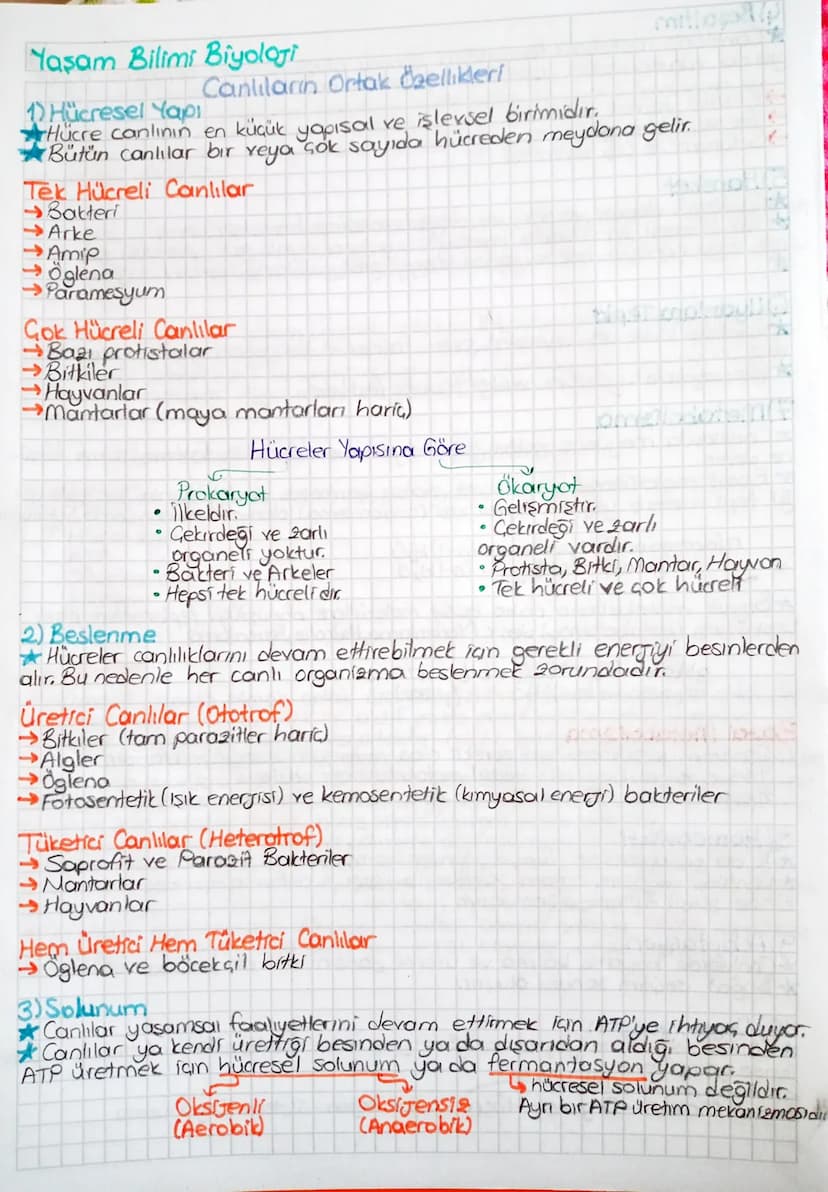 Yaşam Bilimi Biyoloji
Canlıların Ortak Özellikleri
1) Hücresel Yapı
★ Hücre canlının en küçük yapısal ve işlevsel birimidir.
★ Bütün canlılar bir veya çok sayıda hücreden meydana gelir.
Tek Hücreli Canlılar
→ Bakteri
→ Arke
→ Amip
→ Öglena
→ Paramesyum
Çok Hücreli Canlılar
→ Bazı protistalar
→ Bitkiler
→ Hayvanlar
→ Mantarlar (maya mantarları hariç)
Hücreler Yapısına Göre
Prokaryot
• İlkeldir.
• Çekirdeği ve zarlı
organeli yoktur.
• Bakteri ve Arkeler
• Hepsi tek hücrelidir
Ökaryot
• Gelişmiştir.
• Çekirdeği ve zarlı
organeli vardır.
• Protista, Bitki, Mantar, Hayvan
• Tek hücreli ve çok hücreli
2) Beslenme
★ Hücreler canlılıklarını devam ettirebilmek için gerekli energiyi besinlerden
alır. Bu nedenle her canlı organizma beslenmek zorundadır.
Üretici Canlılar (Ototrof)
→ Bitkiler (tam parazitler hariç)
→ Algler
→ Öglena
→ Fotosentetik (ışık energisi) ve kemosentetik (kimyasal energi) bakteriler
Tüketici Canlılar (Heterotrof)
→ Saprofit ve Parazit Bakteriler
→ Mantarlar
→ Hayvanlar
Hem Üretici Hem Tüketici Canlılar
→ Öglena ve böcekçil bitki
3) Solunum
★ Canlılar yaşamsal faaliyetlerini devam ettirmek için ATP'ye ihtiyaç duyar.
★ Canlılar ya kendi ürettiği besinden ya da dışarıdan aldığı besinden
ATP üretmek için hücresel solunum ya da fermantasyon yapar.
↳ hücresel solunum değildir.
Ayrı bir ATP üretim mekanizmasıdır
Oksijenli
(Aerobik)
Oksijensiz
(Anaerobik)